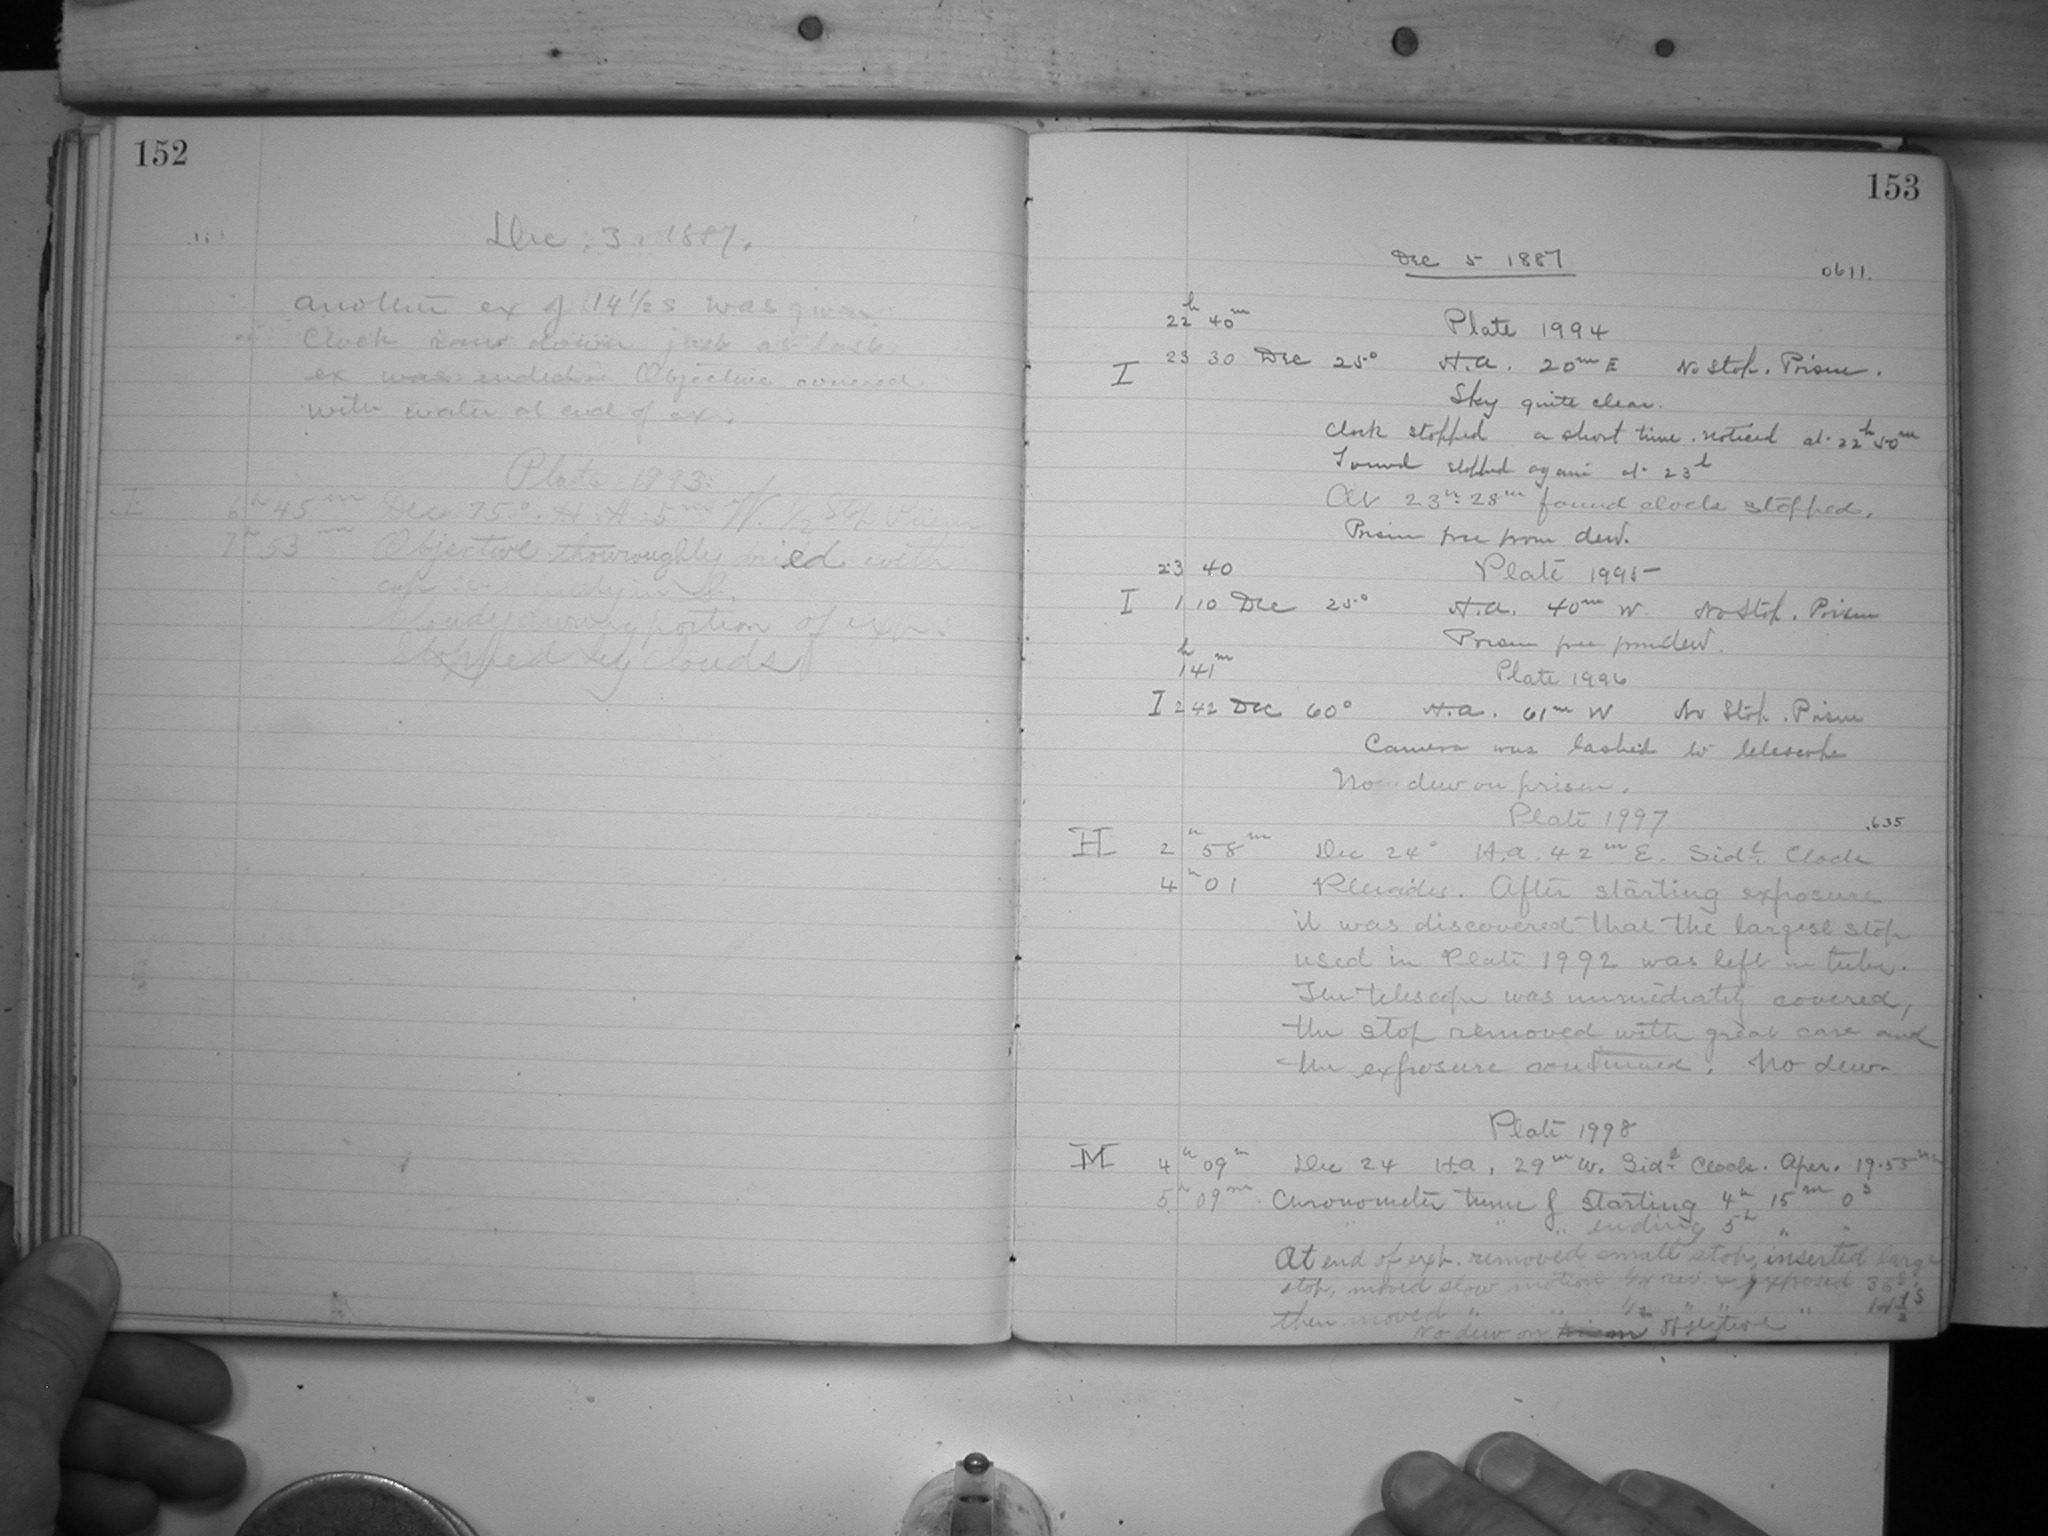 152
Dec. 3. 1887.
another ex of 14 1/2 s was given
Clock ran down just as last
ex was ended. Objective covered
with water at end of ex.
Plate 1993.
I 6h 45m Dec 75°. H.A. 5m W. 1/2 Stop Prism
7h 53m Objective thouroughly dried with
Cloudy during portion of exp.
Stopped by clouds
153
Dec 5 1887 0611.
22h 40m Plate 1994
I 23 30 Dec 25° H.a. 20m E No Stop. Prism.
Sky quite clear.
Clock stopped a short time. noticed at 22h 50m
Found stopped again at 23h
At 23h 28m found clock stopped.
Prism free from dew.
23 40 Plate 1995
I 1 10 Dec 25° H.a. 40m W. No Stop. Prism
Prism free from dew.
1h 41m Plate 1996
I 2 42 Dec 60° H.a. 61m W No Stop. Prism
Camera was lashed to telescope
No dew on prism.
Plate 1997 .635
H 2h 58m Dec 24° H.a. 42m E. Sidl. Clock
4h 01 Pleiades. After starting exposure
it was discovered that the largest stop
used in Plate 1992 was left in tube.
The telescope was immediately covered,
the stop removed with great care and
the exposure continued. No dew.
Plate 1998
M 4h 09m Dec 24 H.a. 29m W. Sidl. Clock. Aper. 19.55mm
5h 09m. Chronometer time of starting 4h 15m 0s
" " " ending 5h " "
At end of exp. removed small stop, inserted large
stop, moved slow motion 1/4 rev. & exposed 36s.
then moved " " 1/2 " " " 14 1/2 s
No dew on prism objective